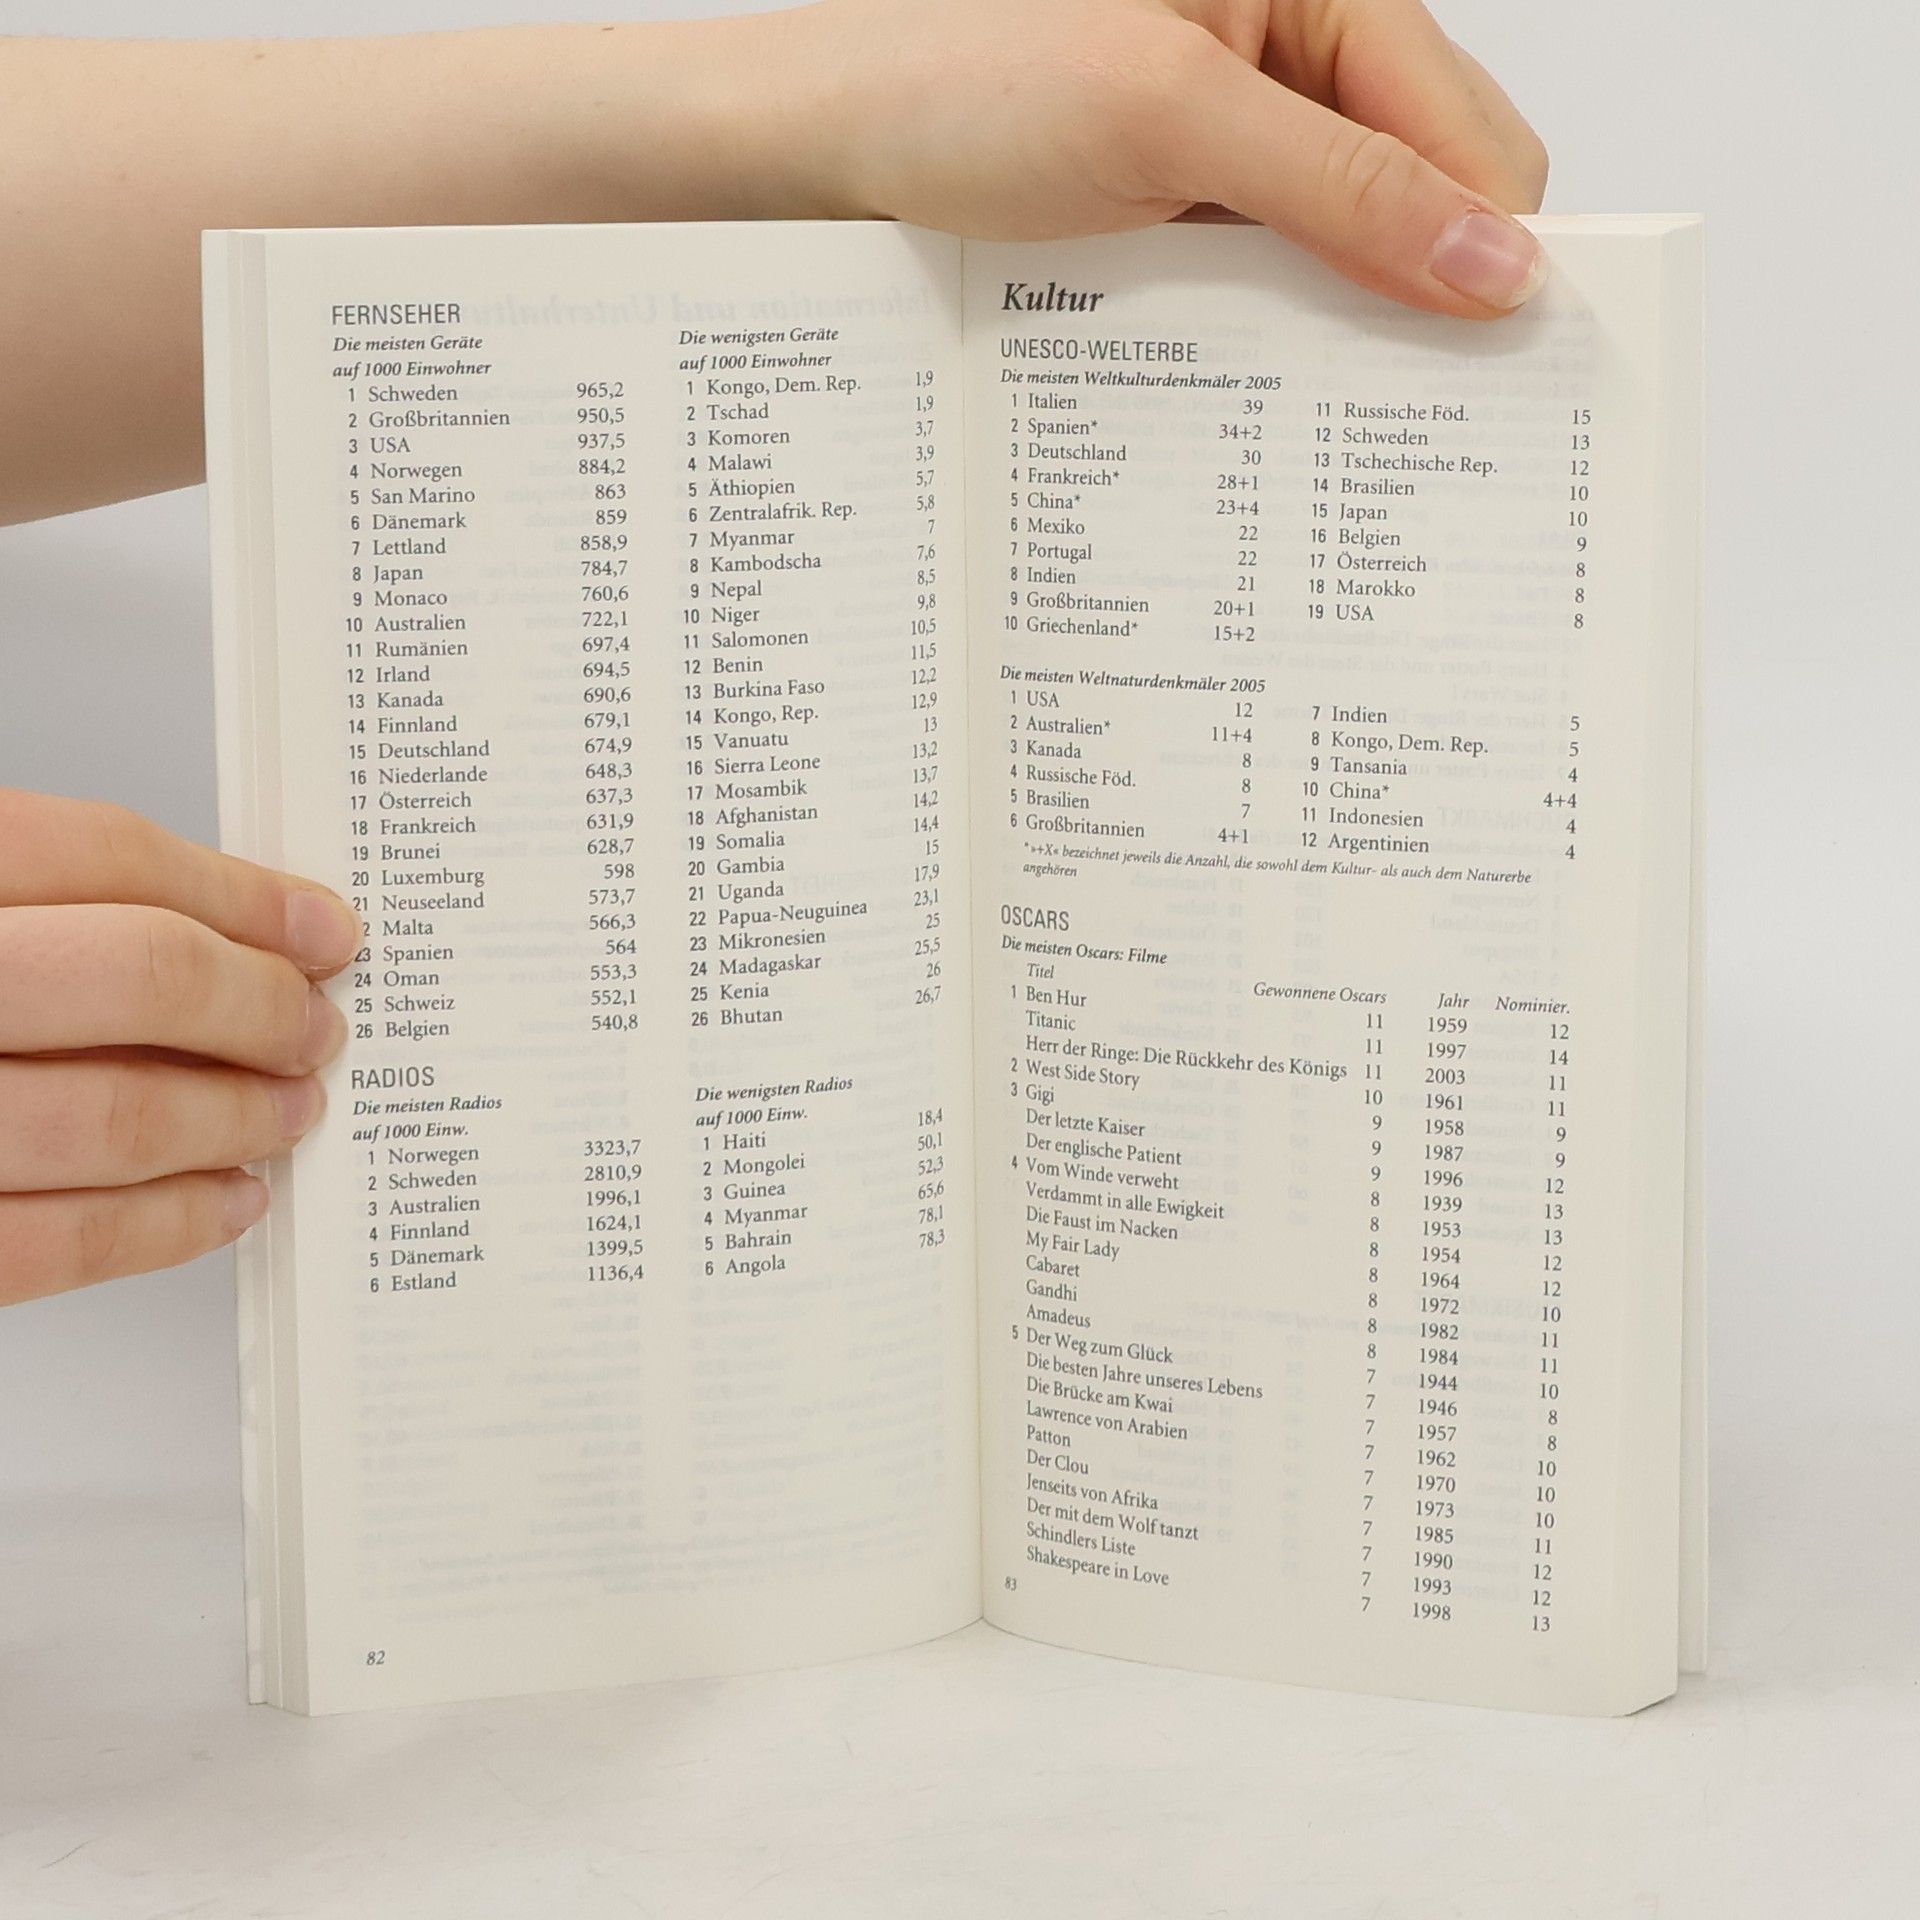 FERNSEHER
Die meisten Geräte
auf 1000 Einwohner
1 Schweden 965,2
2 Großbritannien 950,5
3 USA 937,5
4 Norwegen 884,2
5 San Marino 863
6 Dänemark 859
7 Lettland 858,9
8 Japan 784,7
9 Monaco 760,6
10 Australien 722,1
11 Rumänien 697,4
12 Irland 694,5
13 Kanada 690,6
14 Finnland 679,1
15 Deutschland 674,9
16 Niederlande 648,3
17 Österreich 637,3
18 Frankreich 631,9
19 Brunei 628,7
20 Luxemburg 598
21 Neuseeland 573,7
2 Malta 566,3
23 Spanien 564
24 Oman 553,3
25 Schweiz 552,1
26 Belgien 540,8
Die wenigsten Geräte
auf 1000 Einwohner
1 Kongo, Dem. Rep. 1,9
2 Tschad 1,9
3 Komoren 3,7
4 Malawi 3,9
5 Äthiopien 5,7
6 Zentralafrik. Rep. 5,8
7 Myanmar 7
8 Kambodscha 7,6
9 Nepal 8,5
10 Niger 9,8
11 Salomonen 10,5
12 Benin 11,5
13 Burkina Faso 12,2
14 Kongo, Rep. 12,9
15 Vanuatu 13
16 Sierra Leone 13,2
17 Mosambik 13,7
18 Afghanistan 14,2
19 Somalia 14,4
20 Gambia 15
21 Uganda 17,9
22 Papua-Neuguinea 23,1
23 Mikronesien 25
24 Madagaskar 25,5
25 Kenia 26
26 Bhutan 26,7
RADIOS
Die meisten Radios
auf 1000 Einw.
1 Norwegen 3323,7
2 Schweden 2810,9
3 Australien 1996,1
4 Finnland 1624,1
5 Dänemark 1399,5
6 Estland 1136,4
Die wenigsten Radios
auf 1000 Einw.
1 Haiti 18,4
2 Mongolei 50,1
3 Guinea 52,3
4 Myanmar 65,6
5 Bahrain 78,1
6 Angola 78,3
82
Kultur
UNESCO-WELTERBE
Die meisten Weltkulturdenkmäler 2005
1 Italien 39
2 Spanien* 34+2
3 Deutschland 30
4 Frankreich* 28+1
5 China* 23+4
6 Mexiko 22
7 Portugal 22
8 Indien 21
9 Großbritannien 20+1
10 Griechenland* 15+2
11 Russische Föd. 15
12 Schweden 13
13 Tschechische Rep. 12
14 Brasilien 10
15 Japan 10
16 Belgien 9
17 Österreich 8
18 Marokko 8
19 USA 8
Die meisten Weltnaturdenkmäler 2005
1 USA 12
2 Australien* 11+4
3 Kanada 8
4 Russische Föd. 8
5 Brasilien 7
6 Großbritannien 4+1
7 Indien 5
8 Kongo, Dem. Rep. 5
9 Tansania 4
10 China* 4+4
11 Indonesien 4
12 Argentinien 4
* »+X« bezeichnet jeweils die Anzahl, die sowohl dem Kultur- als auch dem Naturerbe
angehören
OSCARS
Die meisten Oscars: Filme
Titel Gewonnene Oscars Jahr Nominier.
1 Ben Hur 11 1959 12
Titanic 11 1997 14
Herr der Ringe: Die Rückkehr des Königs 11 2003 11
2 West Side Story 10 1961 11
3 Gigi 9 1958 9
Der letzte Kaiser 9 1987 9
Der englische Patient 9 1996 12
4 Vom Winde verweht 8 1939 13
Verdammt in alle Ewigkeit 8 1953 13
Die Faust im Nacken 8 1954 12
My Fair Lady 8 1964 12
Cabaret 8 1972 10
Gandhi 8 1982 11
Amadeus 8 1984 11
5 Der Weg zum Glück 7 1944 10
Die besten Jahre unseres Lebens 7 1946 8
Die Brücke am Kwai 7 1957 8
Lawrence von Arabien 7 1962 10
Patton 7 1970 10
Der Clou 7 1973 10
Jenseits von Afrika 7 1985 11
Der mit dem Wolf tanzt 7 1990 12
Schindlers Liste 7 1993 12
Shakespeare in Love 7 1998 13
83